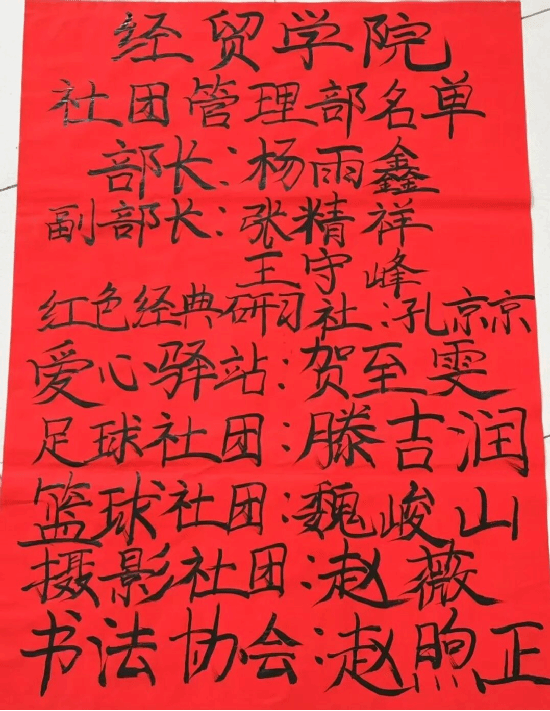 经贸学院
社团管理部名单
部长:杨雨鑫
副部长:张精祥
王守峰
红色经典研习社:孔京京
爱心驿站:贺至雯
足球社团:滕吉润
篮球社团:魏峻山
摄影社团:赵薇
书法协会:赵煦正